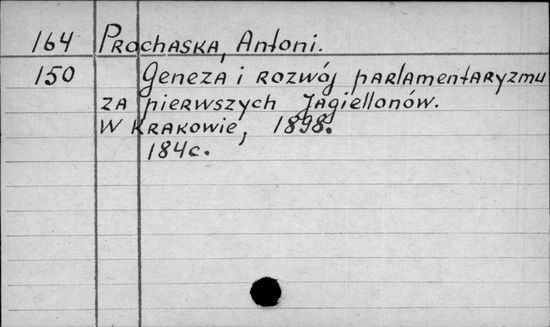 164 Prochaska, Antoni.
150 Geneza i rozwój parlamentaryzmu
za pierwszych Jagiellonów.
W Krakowie, 1898.
184c.